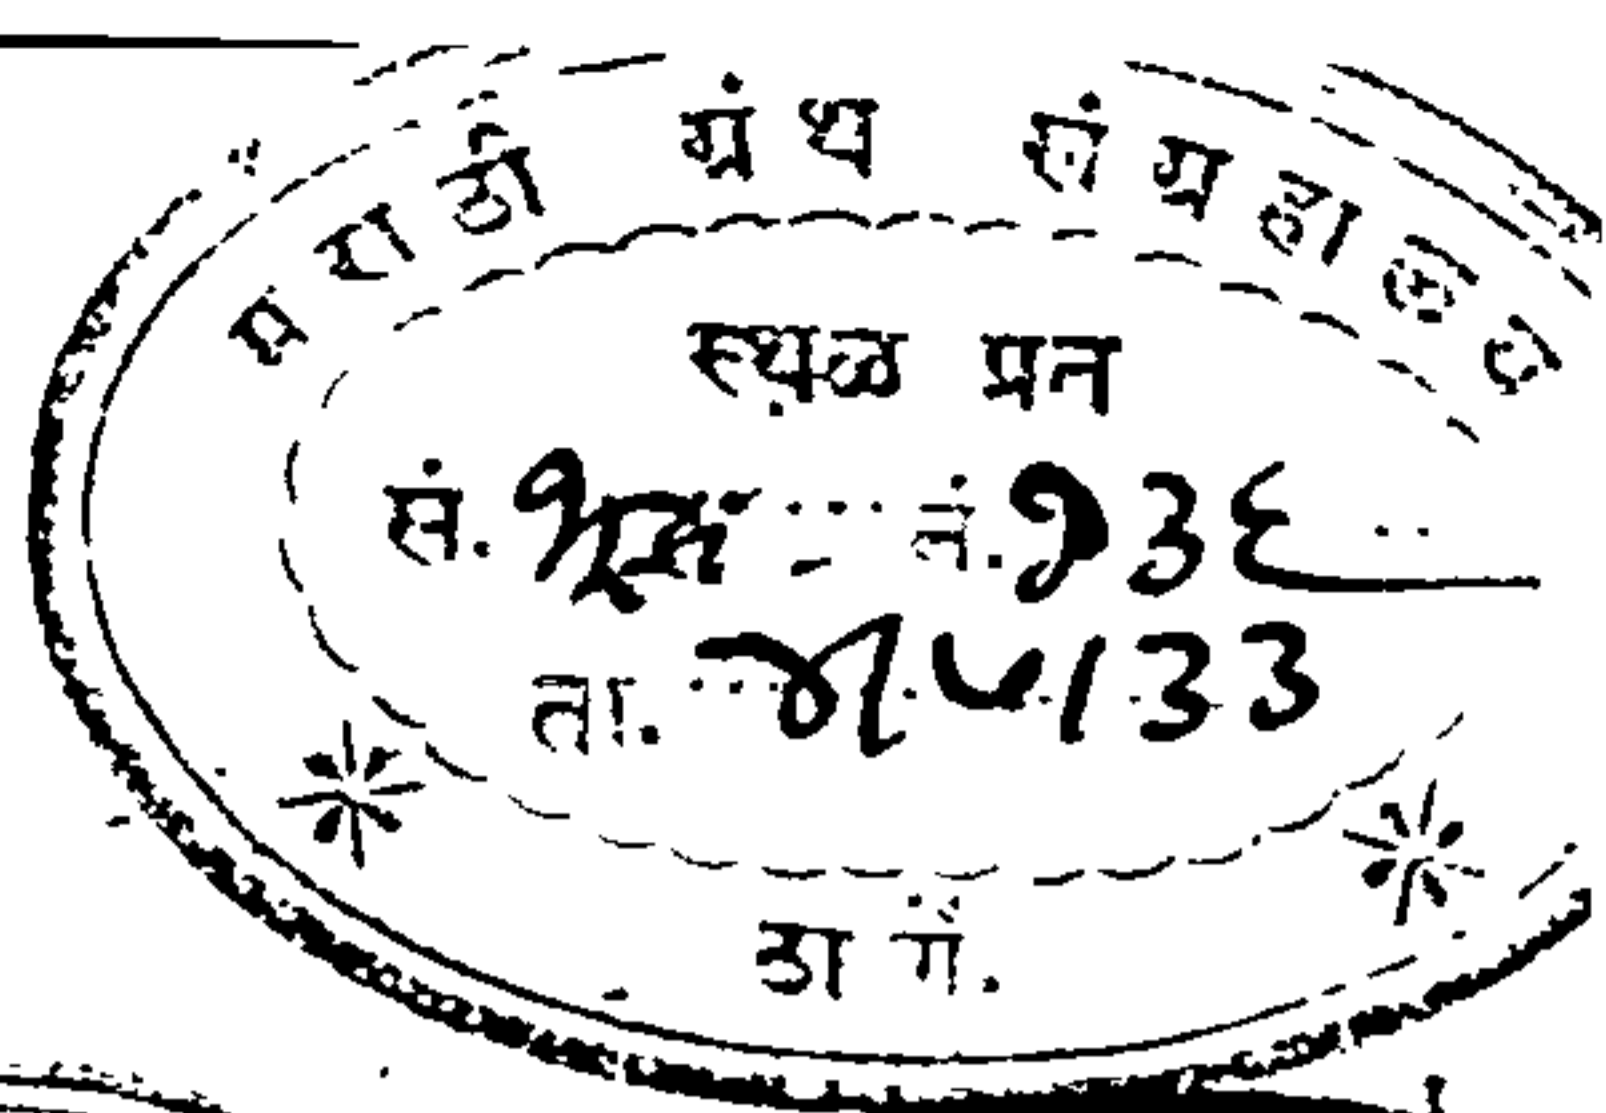 मराठी ग्रंथ संग्रहालय
स्थळ प्रत
सं. नं. १३६
ता. ४।५।३३
ठाणें.